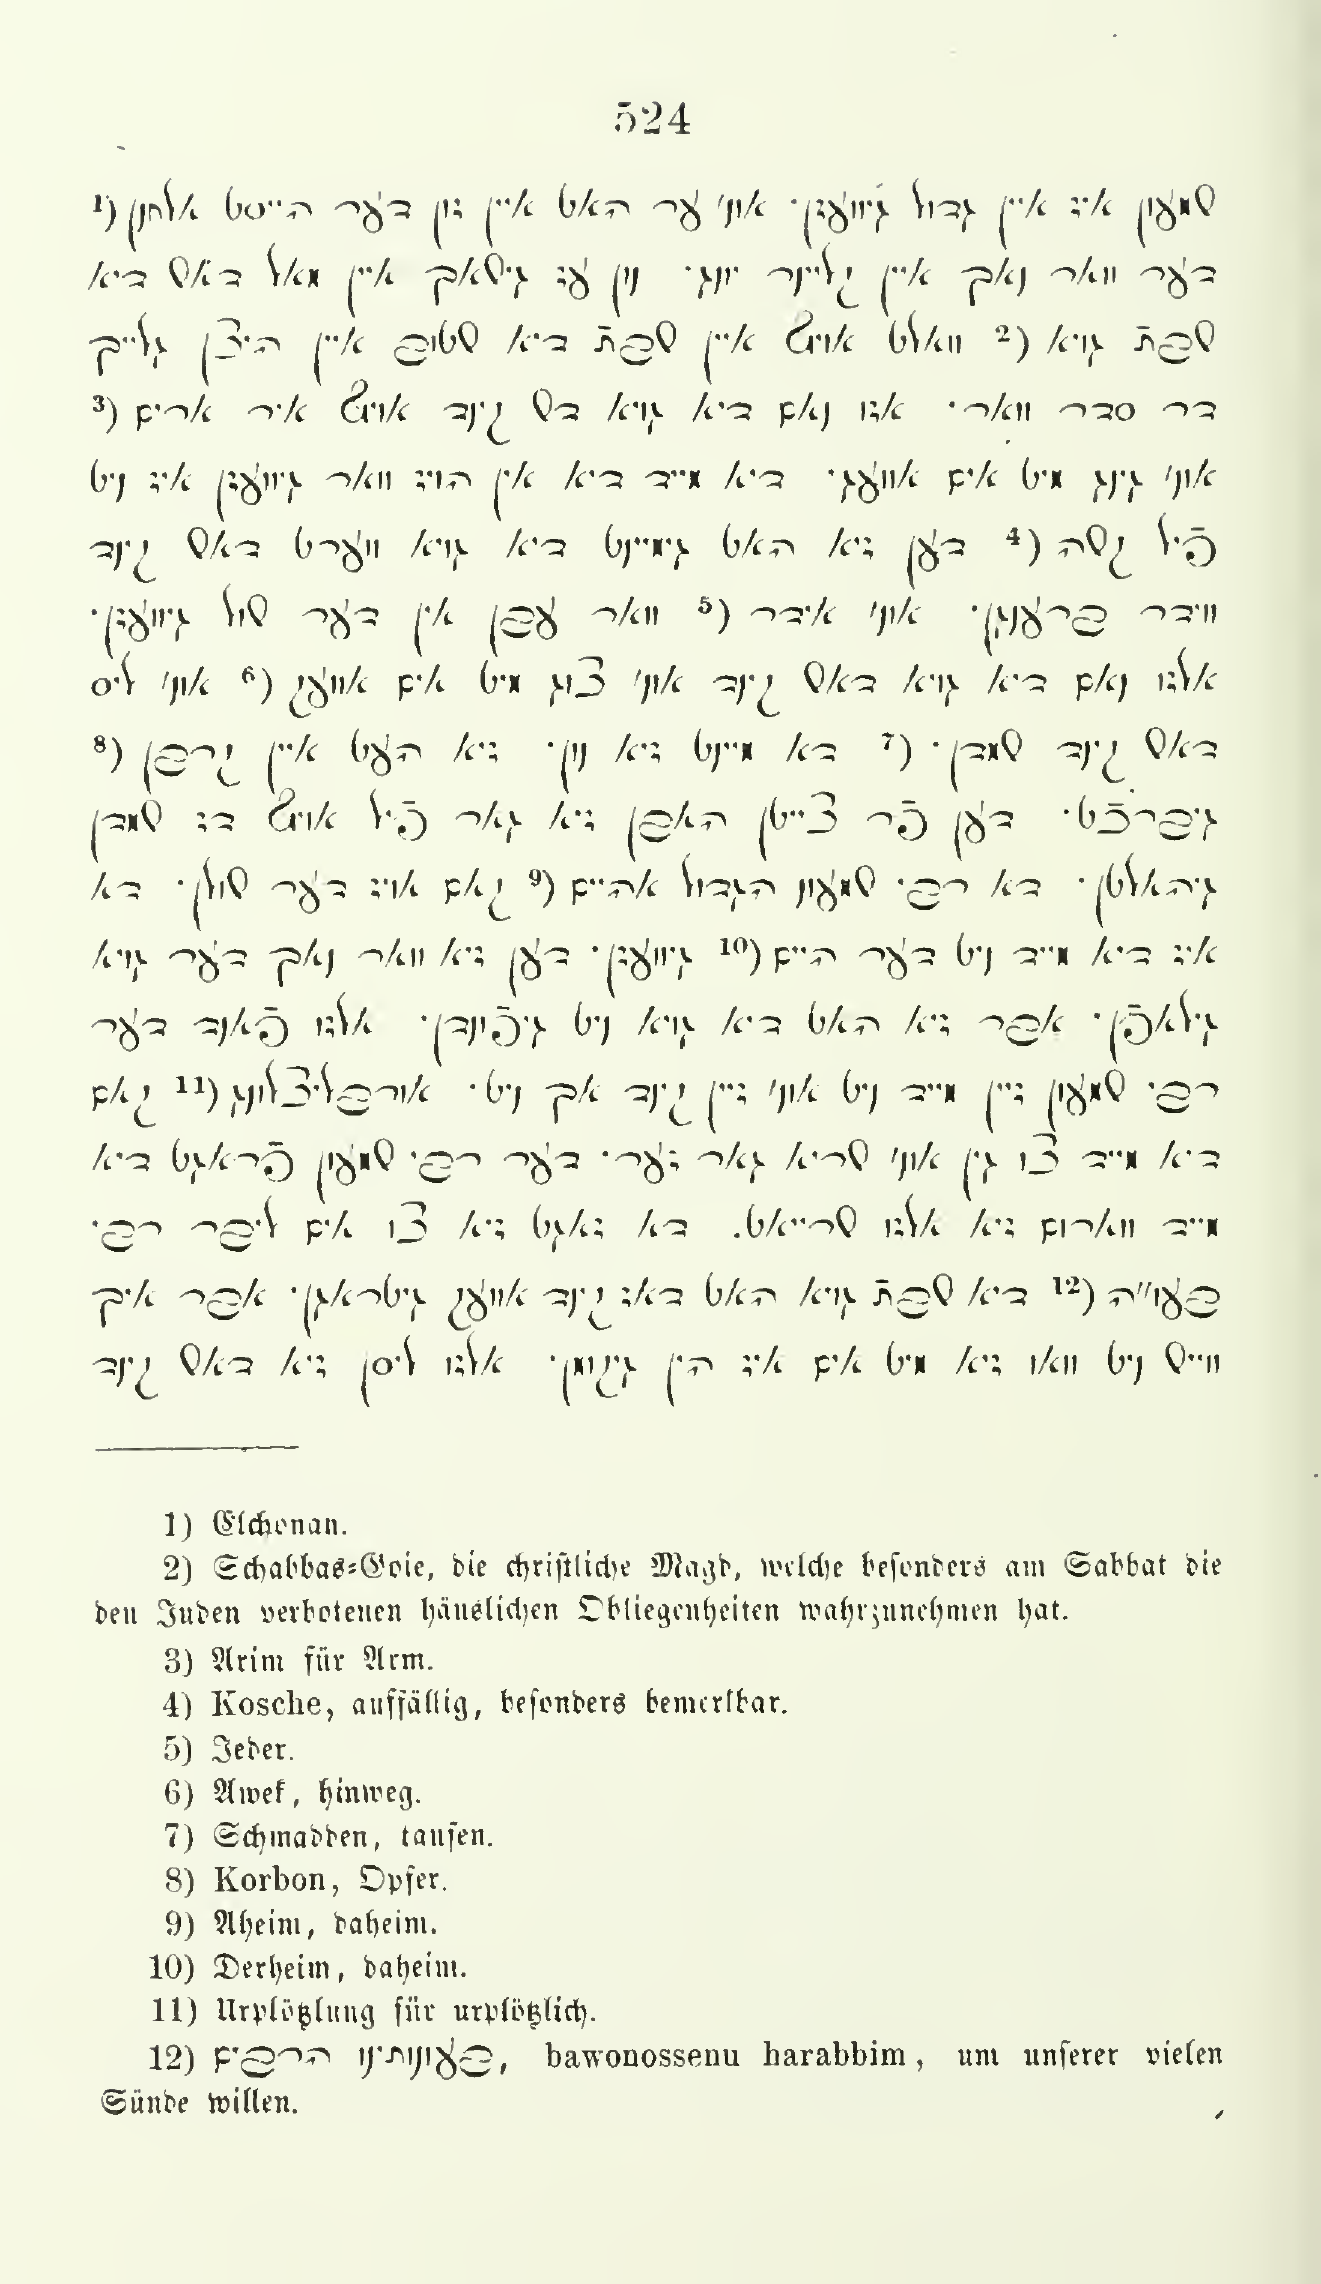 524
שמעון איז איין גדול גיוועזן· אונ' ער האט איין זון דער הייסט אלחנן (1
דער וואר נאך איין קליינר יונג· נון עז גישאך איין מאל דאש דיא
שבת גויא (2 וואלט אויף איין שבת דיא שטוב איין הייצן גלייך
דר סדר וואר· אזו נאם דיא גויא דש קינד אויף איר ארים (3
אונ' גינג מיט אים אוועג· דיא מייד דיא אין הויז וואר גיוועזן איז ניט
פֿיל קשה (4 דען זיא האט גימיינט דיא גויא ווערט דאש קינד
ווידר ברענגן· אונ' אידר (5 וואר עבן אין דער שול גיוועזן·
אלזו נאם דיא גויא דאש קינד אונ' צוג מיט אים אוועק (6 אונ' ליס
דאש קינד שמדן· (7 דא מיינט זיא נון· זיא העט איין קרבן (8
גיברכֿט· דען פֿר צייטן האבן זיא גאר פֿיל אויף דז שמדן
גיהאלטן· דא רב· שמעון הגדול אהיים (9 קאם אויז דער שולן· דא
איז דיא מייד ניט דער היים (10 גיוועזן· דען זיא וואר נאך דער גויא
גילאפֿן· אבר זיא האט דיא גויא ניט גיפֿונדן· אלזו פֿאנד דער
רב· שמעון זיין מייד ניט אונ' זיין קינד אך ניט· אורבליצלונג (11 קאם
דיא מייד צו גין אונ' שריא גאר זער· דער רב· שמעון פֿראגט דיא
מייד ווארום זיא אלזו שרייאט. דא זאגט זיא צו אים ליבר רב·
בעו"ה (12 דיא שבת גויא האט דאז קינד אוועק גיטראגן· אבר איך
ווייש ניט וואו זיא מיט אים איז הין גיקומן· אלזו ליסן זיא דאש קינד
1) Elchonan.
2) Schabbas-Goie, die christliche Magd, welche besonders am Sabbat die
den Juden verbotenen häuslichen Obliegenheiten wahrzunehmen hat.
3) Arim für Arm.
4) Kosche, auffällig, besonders bemerkbar.
5) Jeder.
6) Awek, hinweg.
7) Schmadden, taufen.
8) Korbon, Opfer.
9) Aheim, daheim.
10) Derheim, daheim.
11) Urplötzlung für urplötzlich.
12) בעונותינו הרבים, bawonossenu harabbim, um unserer vielen
Sünde willen.